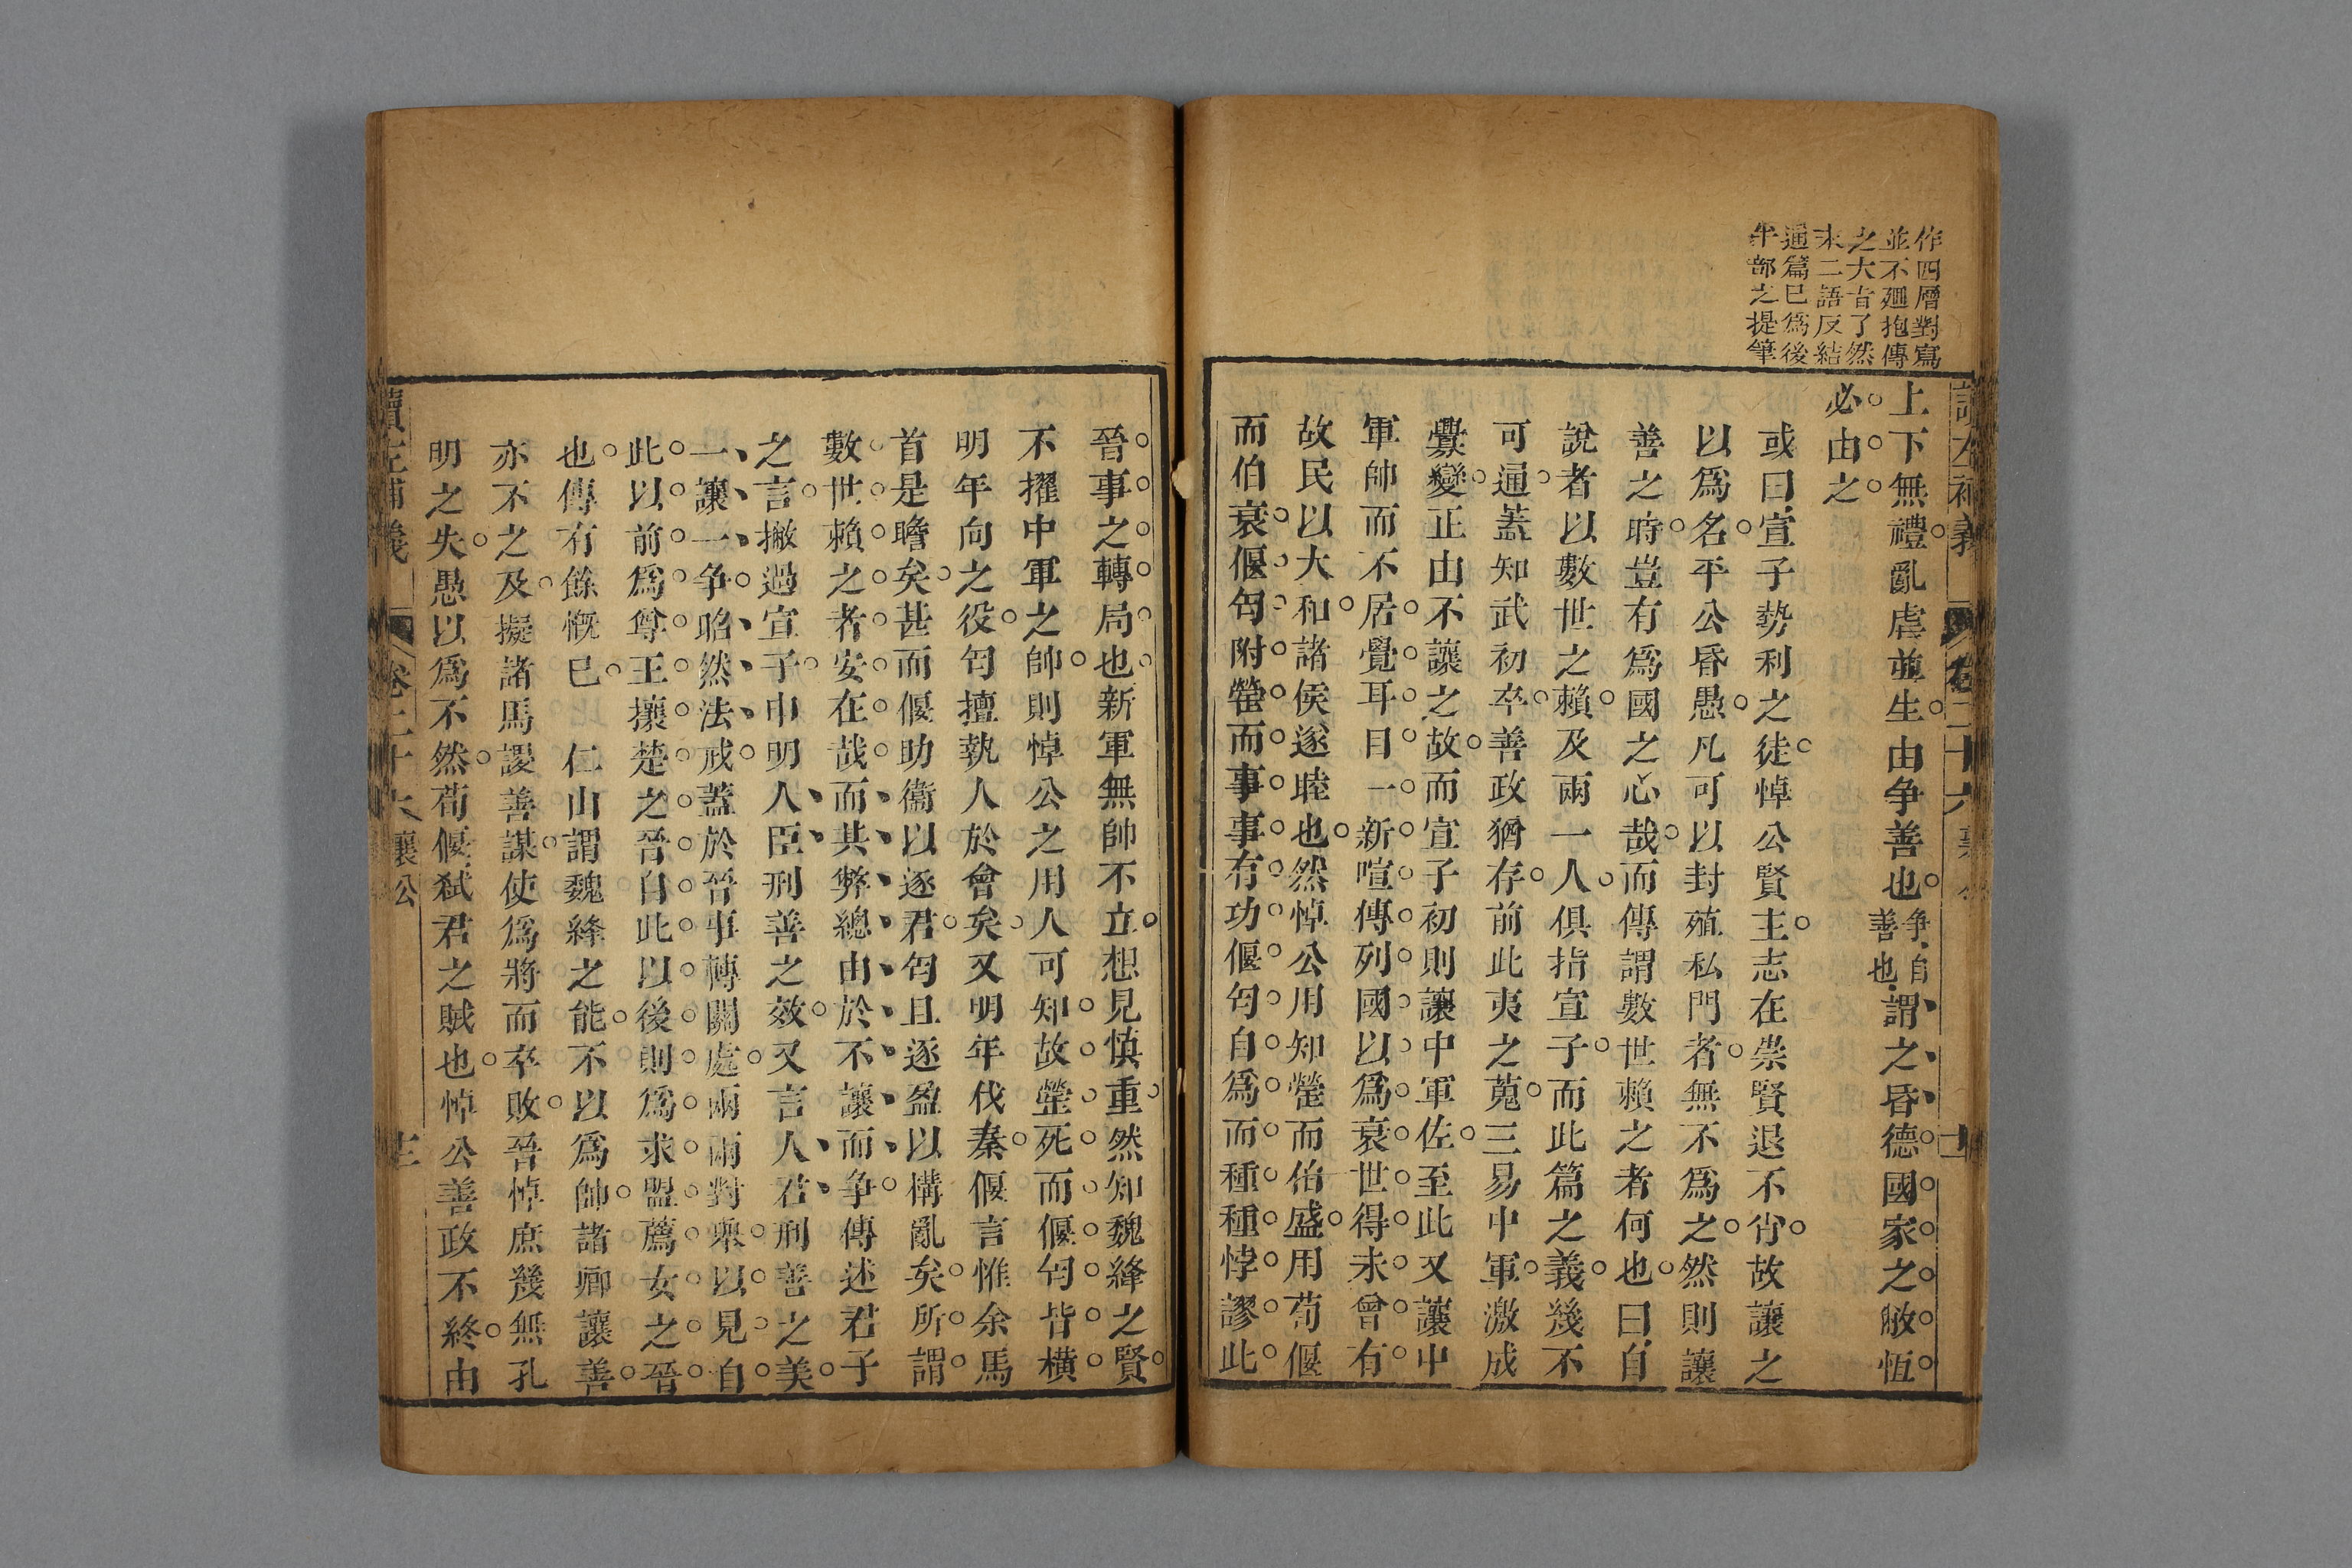 作四層對寫
並不廻抱傳
之大㫖了然
末二語反結
通篇已爲後
半部之提筆
讀左補義 卷二十六 襄公
上下無禮亂虐並生由争善也争自善也謂之昏德國家之敝恆
必由之
或曰宣子勢利之徒悼公賢主志在崇賢退不肖故讓之
以爲名平公昏愚凡可以封殖私門者無不爲之然則讓
善之時豈有爲國之心哉而傳謂數世賴之者何也曰自
說者以數世之賴及兩一人俱指宣子而此篇之義幾不
可通蓋知武初卒善政猶存前此夷之蒐三易中軍激成
釁變正由不讓之故而宣子初則讓中軍佐至此又讓中
軍帥而不居覺耳目一新喧傳列國以爲衰世得未曾有
故民以大和諸侯遂睦也然悼公用知罃而伯盛用荀偃
而伯衰偃匄附罃而事事有功偃匄自爲而種種悖謬此
晉事之轉局也新軍無帥不立想見慎重然知魏絳之賢
不擢中軍之帥則悼公之用人可知故罃死而偃匄皆橫
明年向之役匄擅執人於會矣又明年伐秦偃言惟余馬
首是瞻矣甚而偃助衞以逐君匄且逐盈以構亂矣所謂
數世賴之者安在哉而其弊總由於不讓而争傳述君子
之言撇過宣子申明人臣刑善之效又言人君刑善之美
一讓一争昭然法戒蓋於晉事轉關處兩兩對舉以見自
此以前爲尊王攘楚之晉自此以後則爲求盟薦女之晉
也傳有餘慨已 仁山謂魏絳之能不以爲帥諸卿讓善
亦不之及擬諸馬謖善謀使爲將而卒敗晉悼庶幾無孔
明之失愚以爲不然荀偃弑君之賊也悼公善政不終由
讀左補義 卷二十六 襄公 十三